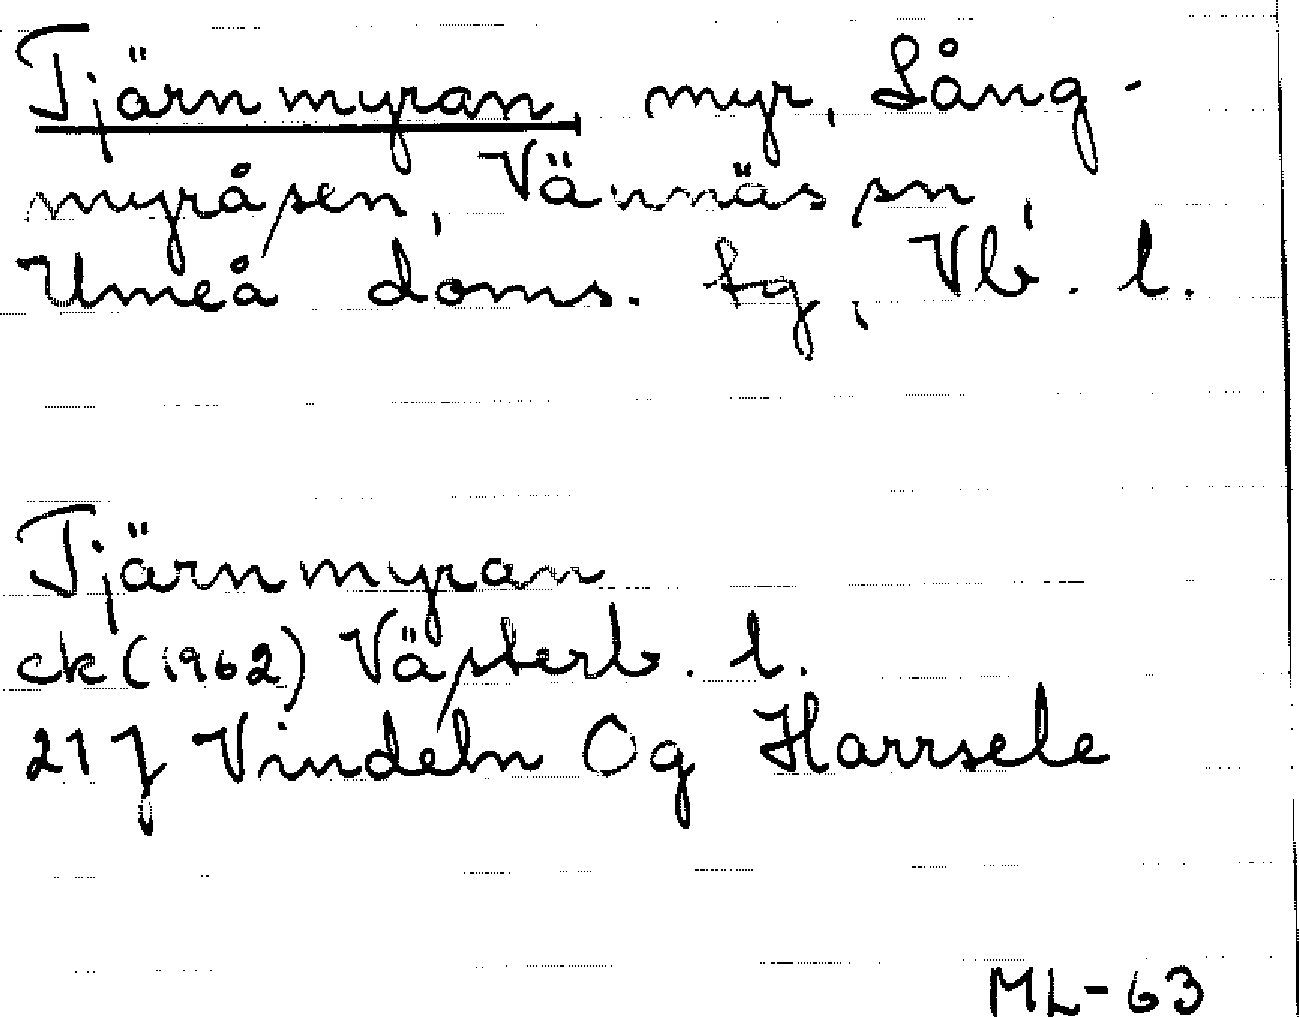 Tjärnmyran, myr, Lång-
myråsen, Vännäs sn,
Umeå doms. tg, Vb. l.
Tjärnmyran
ek (1962) Västerb. l.
21 J Vindeln Og Harrsele
ML-63